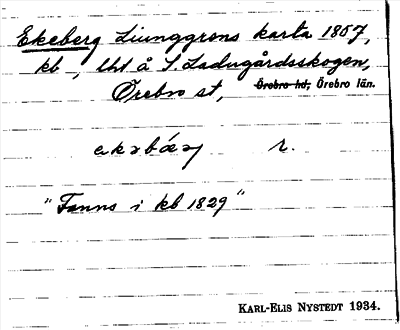 Ekeberg Ljunggrens karta 1857,
kb, lht å S. Ladugårdsskogen,
Örebro st, Örebro hd, Örebro län.
ekəbæɼj r.
"Fanns i kb 1829"
KARL-ELIS NYSTEDT 1934.